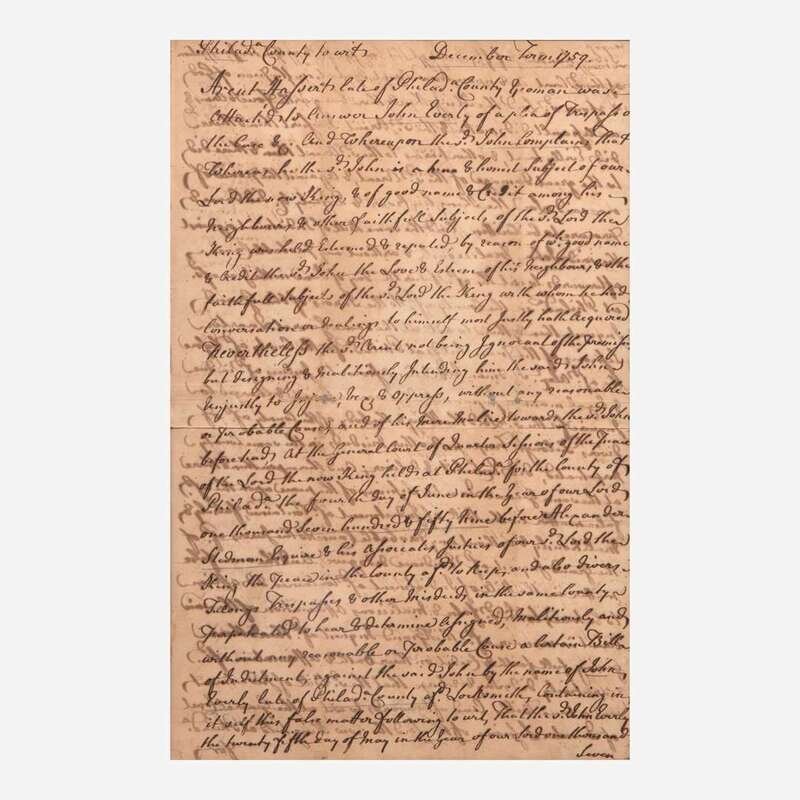 Philad.ª County to wit, December Term 1759.
Arent Hassert late of Philad.ª County Yeoman was
Attach'd to Answer John Everly of a plea of Trespass o
the Case &c. And Whereupon the s.d John Complains that
Whereas he the s.d John is a true & honest Subject of our
Lord the now King, & of good name & Credit among his
Neighbours, & other faithfull Subjects of the s.d Lord the
King was held Esteemed & reputed by reason of w.ch good name
& Credit the s.d John the Love & Esteem of his Neighbours, & other
faithfull Subjects of the s.d Lord the King with whom he had
Conversation or dealings to himself most Justly hath Acquired
Nevertheless the s.d Arent not being Ignorant of the Premisses
but designing & Malitiously Intending him the said John
Unjustly to Injure, Vex, & Oppress, without any reasonable
or Probable Cause, and of his Mere Malice towards the s.d John
beforehad, At the General Court of Quarter Sessions of the Peace
of the Lord the now King held at Philad.ª for the County of
Philad.ª the fourth day of June in the Year of our Lord
one thousand Seven hundred & fifty Nine before Alexander
Stedman Esquire & his Associates Justices of our s.d Lord the
King the Peace in the County af.d to keep, and also divers
Felonys Trespasses & other Misdeeds in the same County
Perpetrated to hear & determine Assigned, Malitiously and
without any reasonable or Probable Cause a Certain Bill
of Indictment, against the said John by the name of John
Everly late of Philad.ª County af.d Locksmith, Containing in
it self this false matter following to wit, That the s.d John Everly
the twenty fifth day of May in the Year of our Lord one thousand
Seven